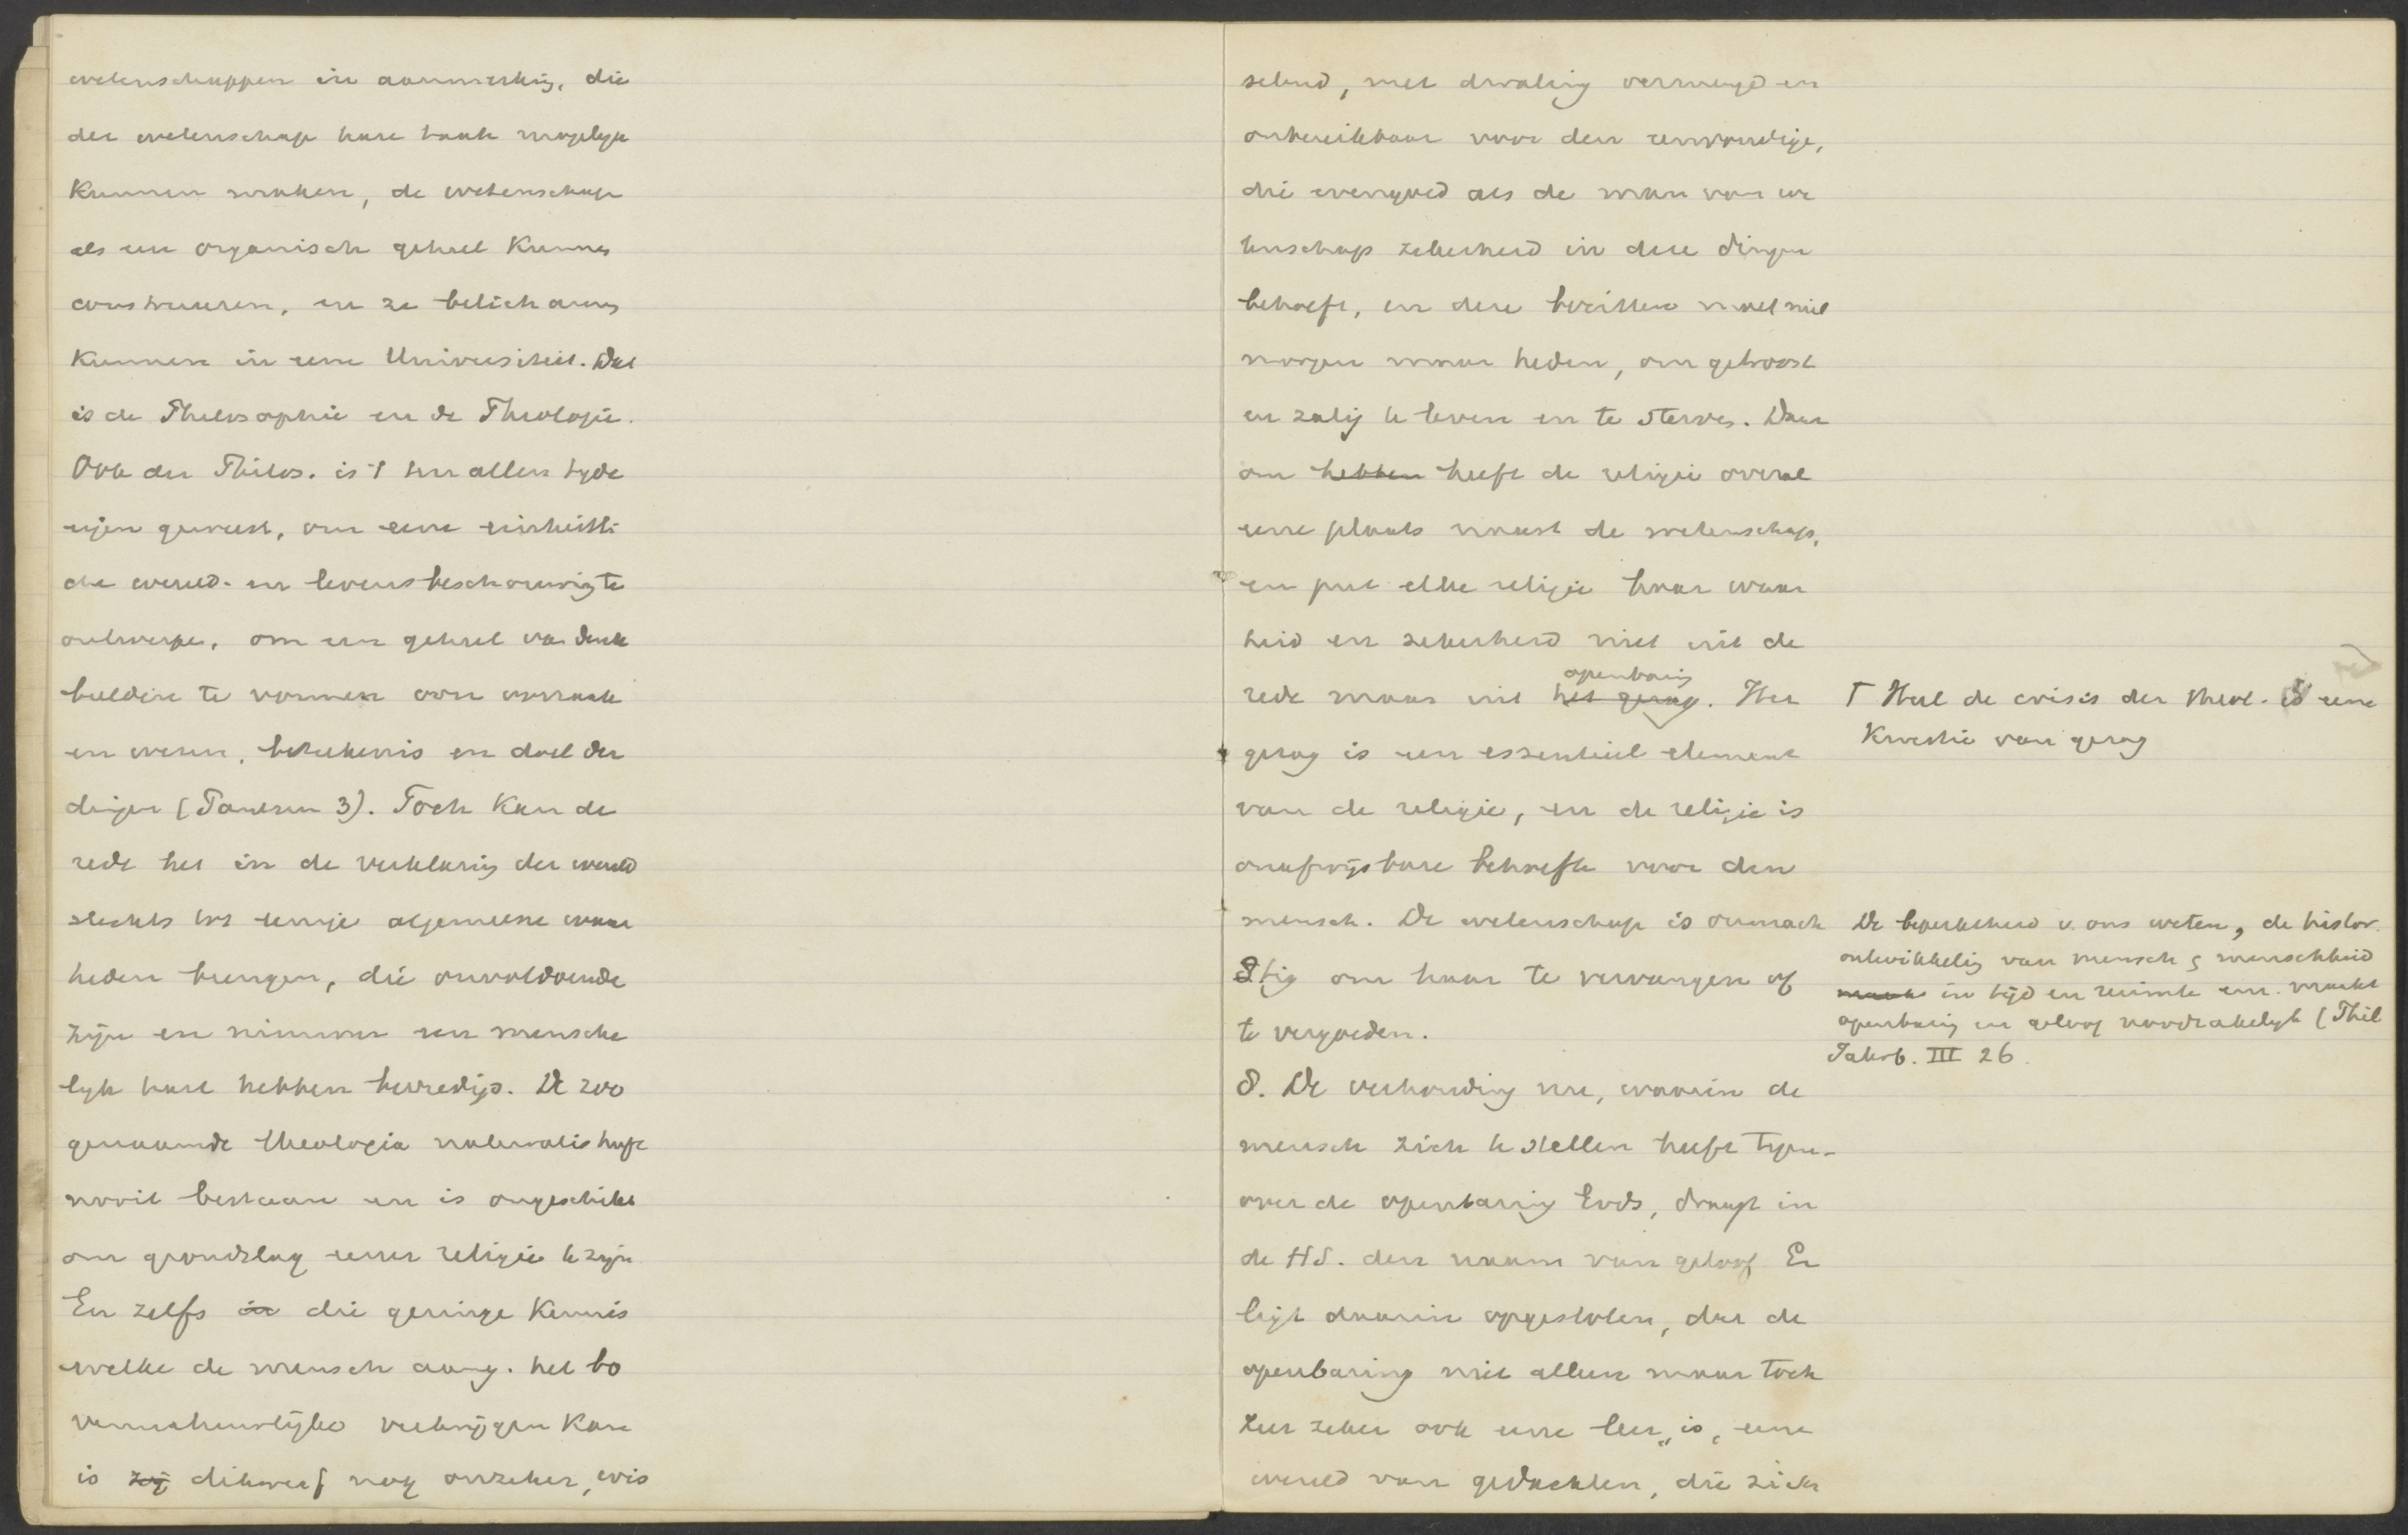 wetenschappen in aanmerking, die
der wetenschap hare taak mogelijk
kunnen maken, de wetenschap
als een organisch geheel kunnen
construeeren, en ze belichamen
kunnen in eene Universiteit. Dat
is de Philosophie en de Theologie.
Ook der Philos. is 't ten allen tijde
eigen geweest, om eene einheitli-
che wereld- en levensbeschouwing te
ontwerpen, om een geheel van denk
beelden te vormen over oorzaak
en wezen, beteekenis en doel der
dingen (Paulsen 3). Toch kan de
rede het in de verklaring der wereld
slechts tot eenige algemeene waar
heden brengen, die onvoldoende
zijn en nimmer een mensche
lijk hart hebben bevredigd. De zoo
genaamde theologia naturalis heeft
nooit bestaan en is ongeschikt
om grondslag eener religie te zijn.
En zelfs in die geringe kennis
welke de mensch aang. het bo
vennatuurlijke verkrijgen kan
is zij dikwerf nog onzeker, wis
selend, met dwaling vermengd en
onbereikbaar voor den eenvoudige,
die evengoed als de man van we
tenschap zekerheid in deze dingen
behoeft, en deze bezitten moet niet
morgen maar heden, om getroost
en zalig te leven en te sterven. Daar
om hebben heeft de religie overal
eene plaats naast de wetenschap,
en put elke religie haar waar
heid en zekerheid niet uit de
openbaring
rede maar uit het gezag. Het
gezag is een essentieel element
van de religie, en de religie is
onafwijsbare behoefte voor den
mensch. De wetenschap is onmach
tig om haar te vervangen of
te vergoeden.
8. De verhouding nu, waarin de
mensch zich te stellen heeft tegen-
over de openbaring Gods, draagt in
de HS. den naam van geloof. Er
ligt daarin opgesloten, dat de
openbaring niet alleen maar toch
zeer zeker ook eene leer is, eene
wereld van gedachten, die zich
Γ Heel de crisis der theol. is eene
kwestie van gezag
De beperktheid v. ons weten, de histor.
ontwikkeling van mensch en menschheid
in tijd en ruimte enz. maakt
openbaring en geloof noodzakelijk (Phil
Jahrb. III 26.